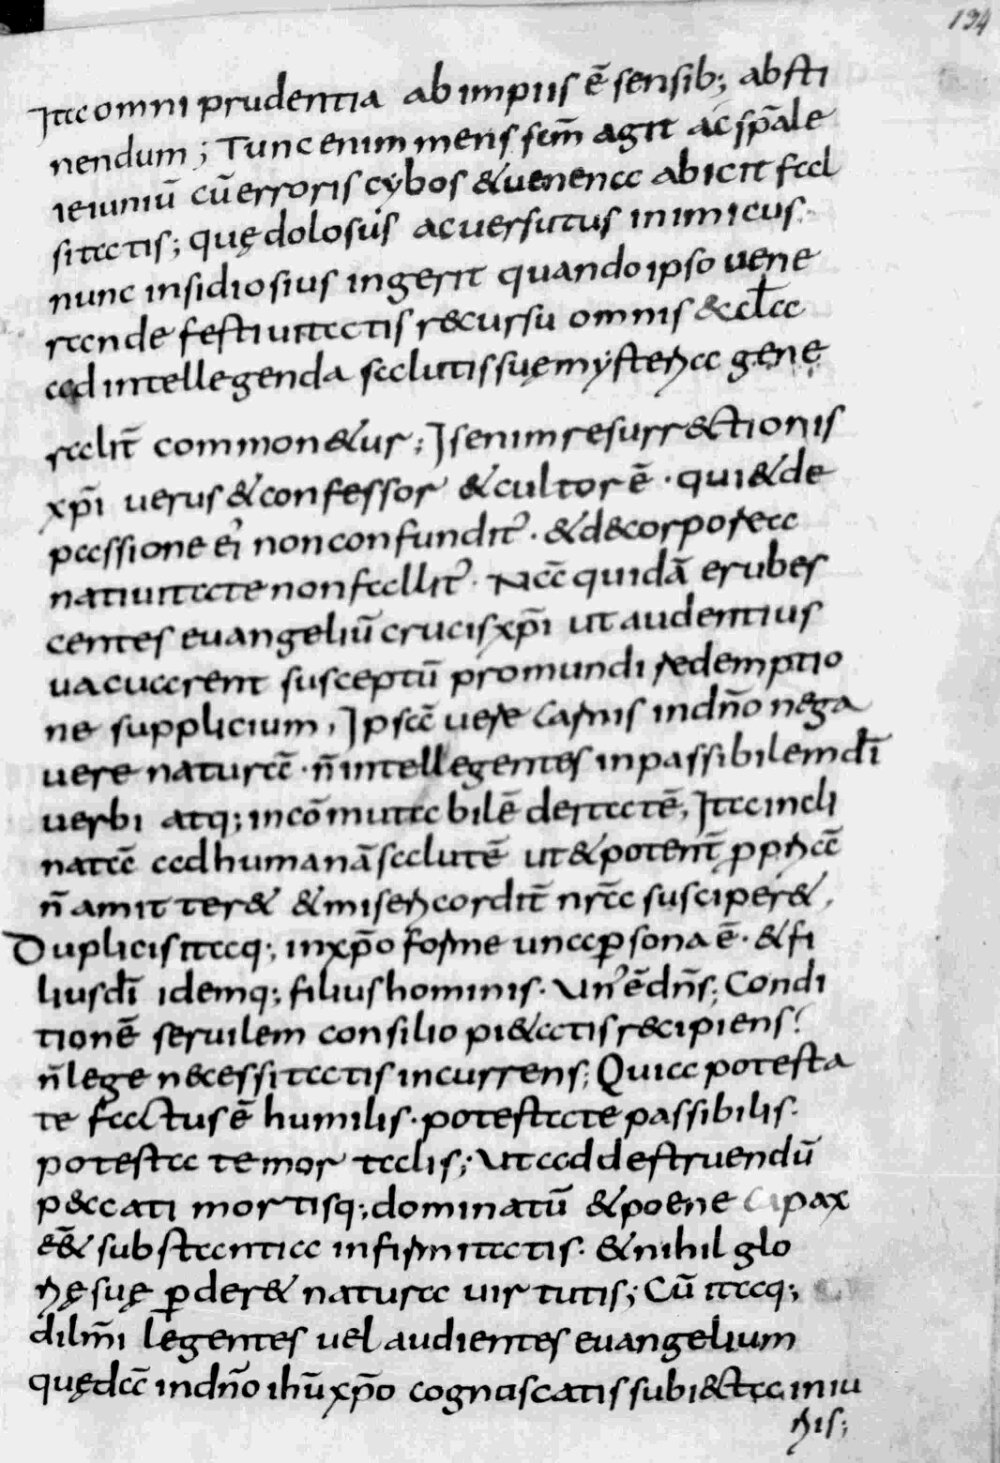 134
Ita omni prudentia ab impiis ē sensib; absti
nendum; Tunc enim mens sc̄m agit ac sp̄ale
ieiuniū cū erroris cybos & uenena abicit fal
sitatis; quę dolosus ac uersutus inimicus.
nunc insidiosius ingerit quando ipso uene
rande festiuitatis recursu omnis &ccl̄a
ad intellegenda salutis suę mysteria gene
ralit̄ common&ur; Is enim resurr&ctionis
xp̄i uerus & confessor & cultor ē · qui & de
passione ei' non confundit' · & de corporea
natiuitate non fallit' · Nā quidā erubes
centes euangeliū crucis xp̄i ut audentius
uacuarent susceptū pro mundi redemptio
ne supplicium, Ipsā uere carnis in dn̄o nega
uere naturā · n̄ intellegentes inpassibilem dī
uerbi atq; incōmutabilē deitatē; Ita incli
natā ad humanā salutē ut & potent̄ ppria
n̄ amitter& & misericordit̄ nr̄a susciper&,
Duplicis itaq; in xp̄o forme una psona ē · & fi
lius dī idemq; filius hominis · Un' ē dn̄s; Condi
tionē seruilem consilio pi&atis recipiens.
n̄ lege necessitatis incurrens; Quia potesta
te factus ē humilis · potestate passibilis.
potestate mortalis; Ut ad destruendū
p&cati mortisq; dominatū & poene capax
ēē& substantia infirmitatis · & nihil glo
rię suę pder& natura uirtutis; Cū itaq;
dilm̄i legentes uel audientes euangelium
quędā in dn̄o ihū xp̄o cognoscatis subi&cta iniu
riis;